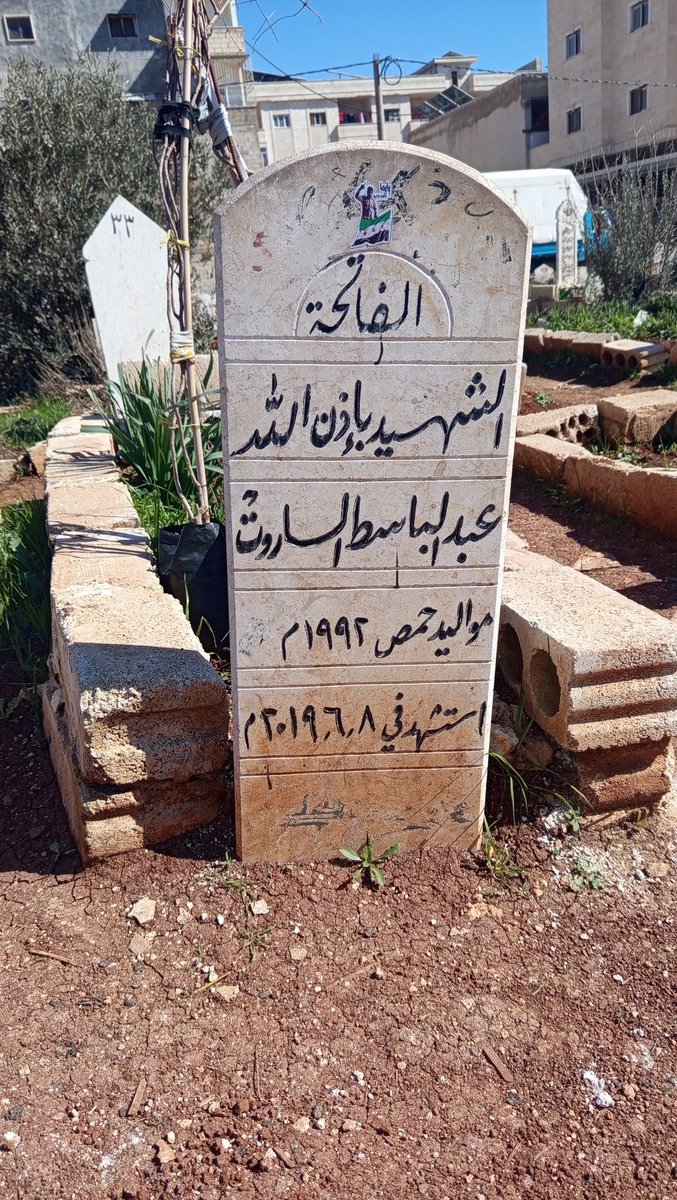 الفاتحة
الشهيد بإذن الله
عبد الباسط الساروت
مواليد حمص ١٩٩٢م
استشهد في ٢٠١٩،٦،٨م
٣٣